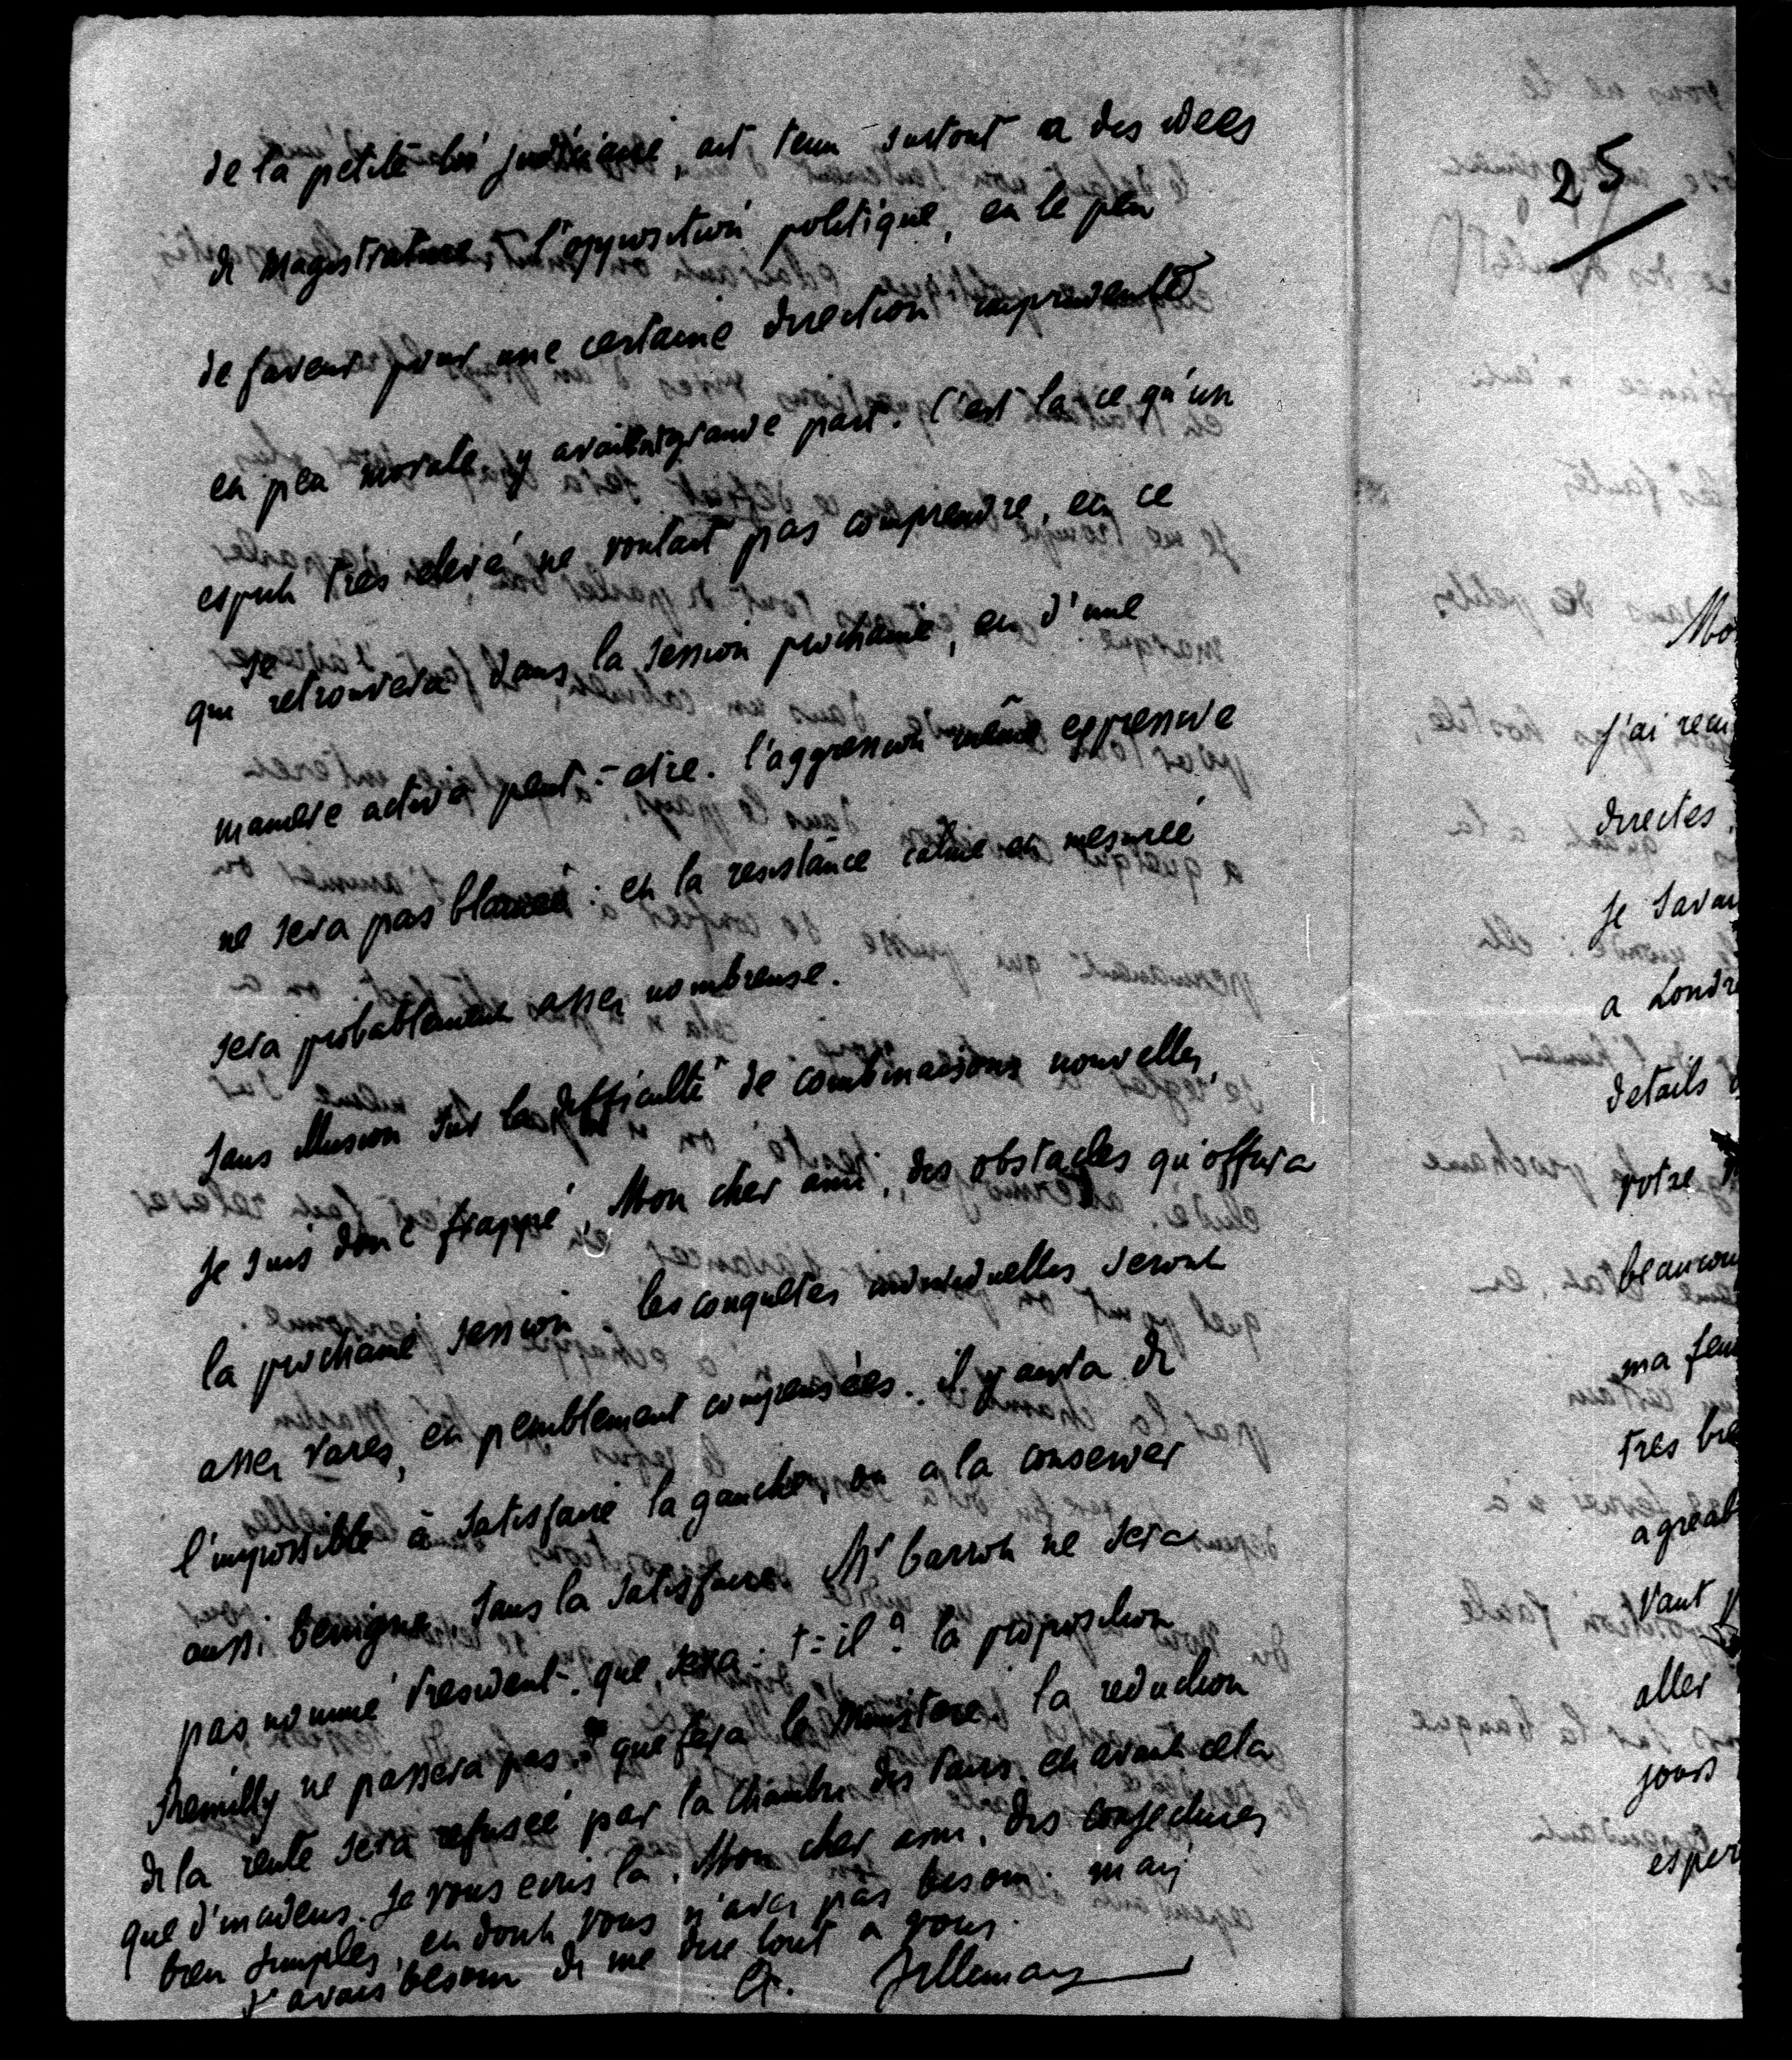 de la petite loi judiciaire, ont tenu surtout a des idees
de magistrature, l'opposition politique, et le peu
de faveur pour une certaine direction imprudente
et peu morale, y avaient grande part. C'est la ce qu'un
esprit très elevé ne voulait pas comprendre, et ce
qui se retrouvera dans la session prochaine, et d'une
maniere active peut-etre. l'aggression même expressive
ne sera pas blamée: et la resistance calme et mesurée
sera probablement assez nombreuse.
sans illusion sur la difficulté de combinaisons nouvelles,
je suis donc frappé, Mon cher ami, des obstacles qu'offrira
la prochaine session. les conquetes individuelles seront
assez rares, et peniblement compensées. il y aura de
l'impossible à satisfaire la gauche, ou a la conserver
aussi benigne, sans la satisfaire. Mr barrot ne sera
pas nommé President. que sera-t-il? la proposition
Remilly ne passera pas. que fera le ministere? la reduction
de la rente sera refusée par la Chambre des Pairs. et avant cela
que d'incidens. Je vous ecris la, Mon cher ami, des conjectures
bien simples, et dont vous n'avez pas besoin. mais
j'avais besoin de me dire tout a vous.
Villemain
25
Mo
j'ai recu
directes.
je savai
a Londre
details
votre
beaucou
ma fem
tres bre
agreab
Vaut
aller
jours
esper